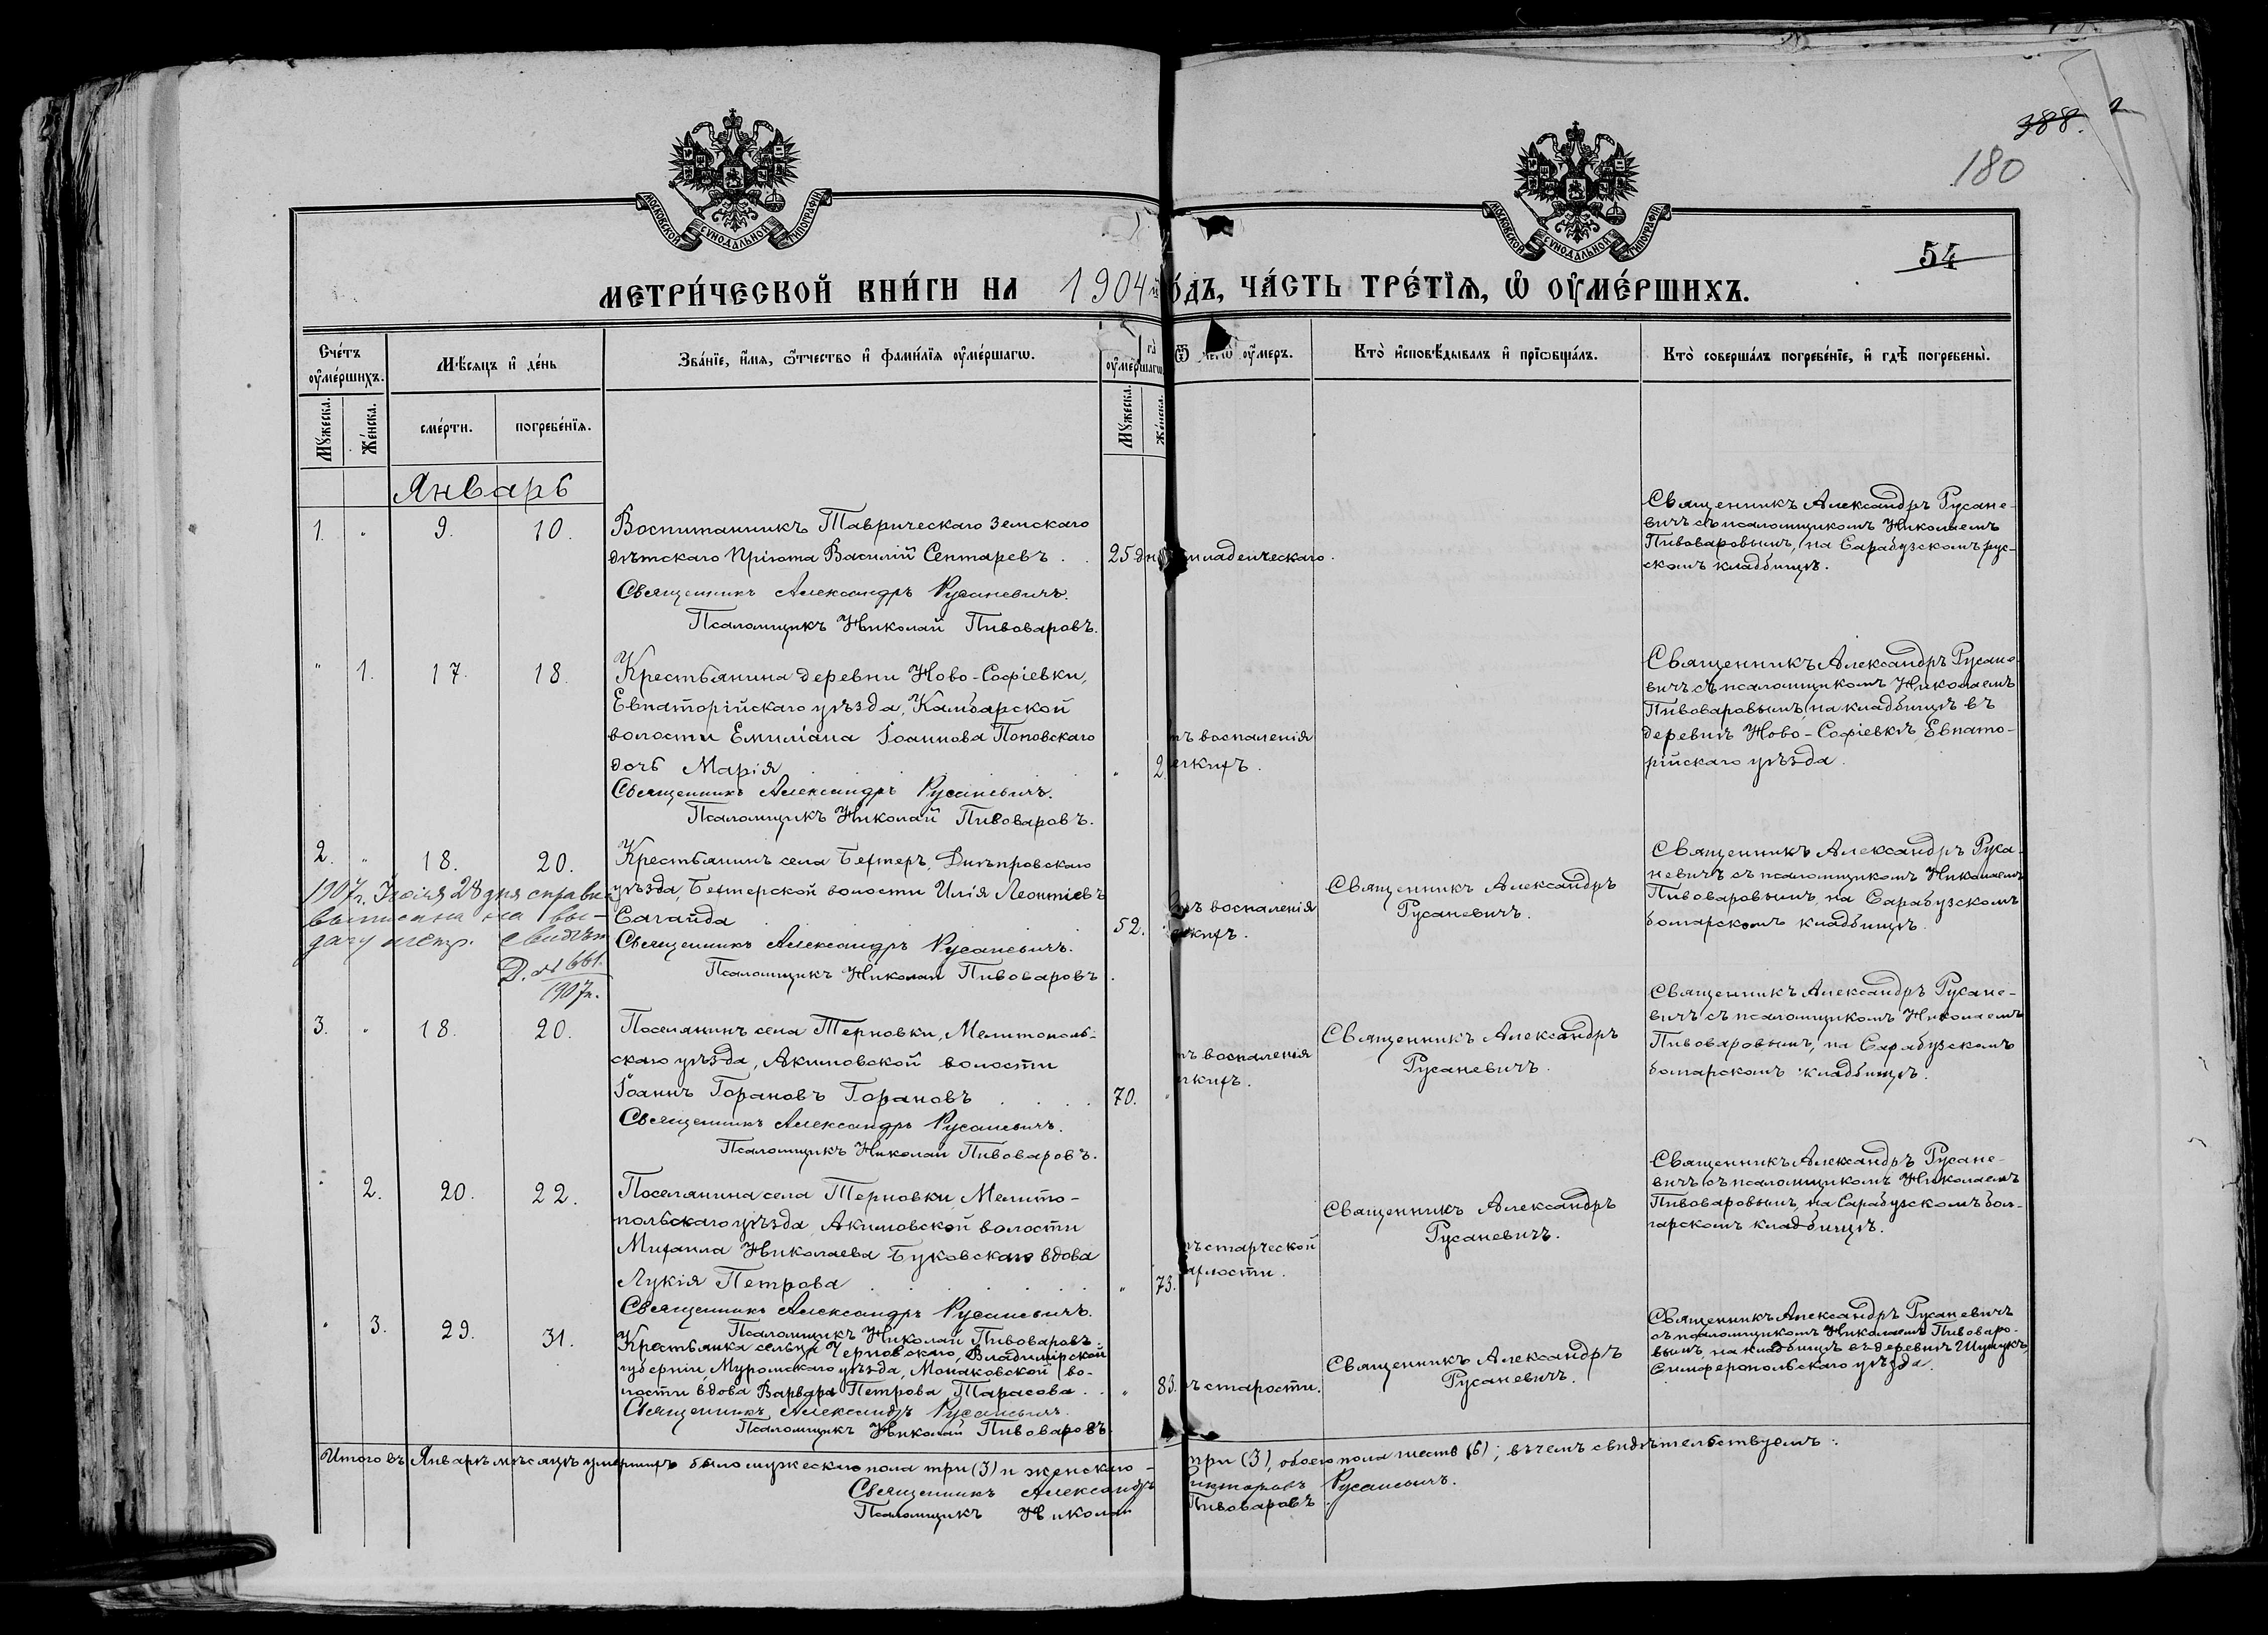 388.
180
54
МОСКОВСКОЙ СѴНОДАЛЬНОЙ ТИПОГРАФІИ
МОСКОВСКОЙ СѴНОДАЛЬНОЙ ТИПОГРАФІИ
МЕТРИ́ЧЕСКОЙ КНИ́ГИ НА 1904й
о́дъ, ЧА́СТЬ ТРЕ́ТЇѦ, Ѡ҆ ОУ҆МЕ́РШИХЪ.
Счéтъ оу҆мéршихъ.
Мѣ́сяцъ и҆ дéнь
Звáнїе, и҆́мя, ѻ҆́тчество и҆ фами́лїя оу҆мéршагѡ.
оу҆мéршагѡ
оу҆́меръ.
Ктò и҆сповѣ́дывалъ и҆ прїѡбщáлъ.
Ктò совершáлъ погребéнїе, и҆ гдѣ̀ погребены̀.
Мꙋ́жеска.
Жéнска.
смéрти.
погребéнїя.
Мꙋ́жеска.
Жéнска.
Январь
1. " 9. 10. Воспитанникъ Таврическаго Земскаго
дѣтскаго Пріюта Василій Септаревъ . . 25 дн
Священникъ Александръ Русаневичъ.
Псаломщикъ Николай Пивоваровъ.
младенческаго.
Священникъ Александръ Русане-
вичъ съ псаломщикомъ Николаемъ
Пивоваровымъ, на Сарабузскомъ рус-
скомъ кладбищѣ.
" 1. 17. 18. Крестьянина деревни Ново-Софіевки,
Евпаторійскаго уѣзда, Камбарской
волости Емиліана Іоаннова Поповскаго
дочь Марія . . . . " 2.
Священникъ Александръ Русаневичъ.
Псаломщикъ Николай Пивоваровъ.
тъ воспаленія
егкихъ.
Священникъ Александръ Русане-
вичъ съ псаломщикомъ Николаемъ
Пивоваровымъ, на кладбищѣ въ
деревнѣ Ново-Софіевкѣ, Евпато-
рійскаго уѣзда.
2. " 18. 20. Крестьянинъ села Бехтеръ, Днѣпровскаго
уѣзда, Бехтерской волости Илія Леонтіевъ
Сагайда . . . . 52.
Священникъ Александръ Русаневичъ.
Псаломщикъ Николай Пивоваровъ.
1907г. Іюля 28 дня справка
выписана на вы-
дачу метр. свидѣт.
Д. № 661.
1907г.
воспаленія
егкихъ.
Священникъ Александръ
Русаневичъ.
Священникъ Александръ Руса-
невичъ съ псаломщикомъ Николаемъ
Пивоваровымъ, на Сарабузскомъ
болгарскомъ кладбищѣ.
3. " 18. 20. Поселянинъ села Терновки, Мелитополь-
скаго уѣзда, Акимовской волости
Іоаннъ Горановъ Горановъ . . . . 70. "
Священникъ Александръ Русаневичъ.
Псаломщикъ Николай Пивоваровъ.
тъ воспаленія
гкихъ.
Священникъ Александръ
Русаневичъ.
Священникъ Александръ Русане-
вичъ съ псаломщикомъ Николаемъ
Пивоваровымъ, на Сарабузскомъ
болгарскомъ кладбищѣ.
" 2. 20. 22. Поселянина села Терновки, Мелито-
польскаго уѣзда, Акимовской волости
Михаила Николаева Буковскаго вдова
Лукія Петрова . . . . " 73.
Священникъ Александръ Русаневичъ.
Псаломщикъ Николай Пивоваровъ.
тъ старческой
яхлости.
Священникъ Александръ
Русаневичъ.
Священникъ Александръ Русане-
вичъ съ псаломщикомъ Николаемъ
Пивоваровымъ, на Сарабузскомъ бол-
гарскомъ кладбищѣ.
" 3. 29. 31. Крестьянка сельца Черновскаго, Владимірской
губерніи, Муромскаго уѣзда, Монаковской во-
лости вдова Варвара Петрова Тарасова . . " 83.
Священникъ Александръ Русаневичъ.
Псаломщикъ Николай Пивоваровъ.
тъ старости.
Священникъ Александръ
Русаневичъ.
Священникъ Александръ Русаневичъ
съ псаломщикомъ Николаемъ Пивоваро-
вымъ, на кладбищѣ въ деревнѣ Шунукъ,
Симферопольскаго уѣзда.
Итого въ Январѣ мѣсяцѣ умершихъ было мужескаго пола три (3) и женскаго -
три (3), обоего пола шесть (6); въ чемъ свидѣтельствуемъ:
Священникъ Александръ Викторовъ Русаневичъ.
Псаломщикъ Николай Пивоваровъ.